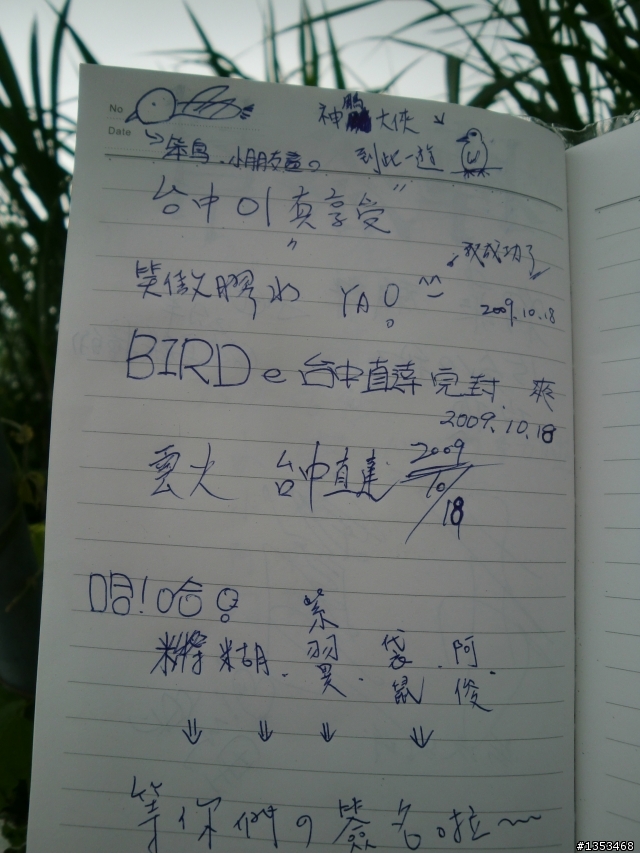 No
神鵰大俠
Date
笨鳥、小朋友 到此一遊
台中01真享受
我成功了
笑傲膠水 YA! ^^ 2009.10.18
BIRD e 台中直達完封 爽
2009.10.18
雲火 台中直達 2009/10/18
唱!哈!
糊糊、紫羽翼、袋鼠、阿俊
等你們の簽名啦~
#1353468